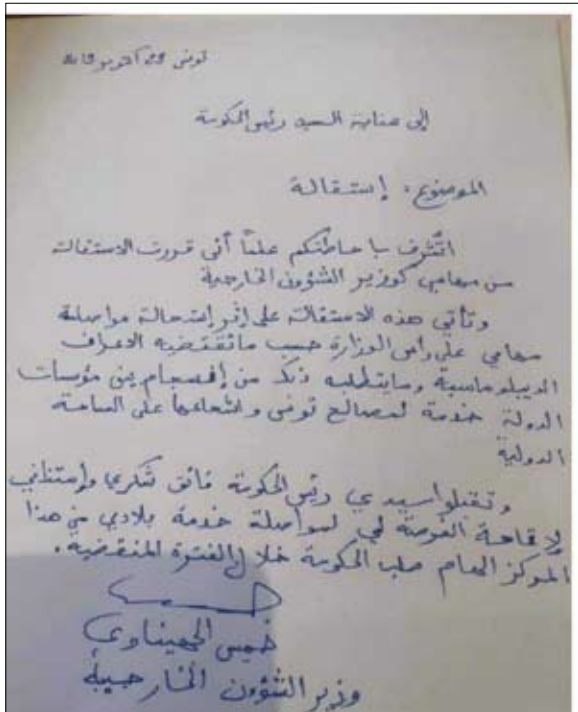 تونس 29 أكتوبر 2019
إلى عناية السيد رئيس الحكومة
الموضوع: إستقالة
أتشرف بإحاطتكم علمًا أنى قررت الاستقالة
من مهامي كوزير الشؤون الخارجية
وتأتي هذه الاستقالة على إثر إستحالة مواصلة
مهامي على رأس الوزارة حسب ماتقتضيه الاعراف
الديبلوماسية ومايتطلبه ذلك من إنسجام بين مؤسسات
الدولة خدمة لمصالح تونس وإشعاعها على الساحة
الدولية
وتقبلوا سيدي رئيس الحكومة فائق شكري وإمتناني
لإتاحة الفرصة لي لمواصلة خدمة بلادي من هذا
المركز الهام صلب الحكومة خلال الفترة المنقضية.
خميس الجهيناوي
وزير الشؤون الخارجية